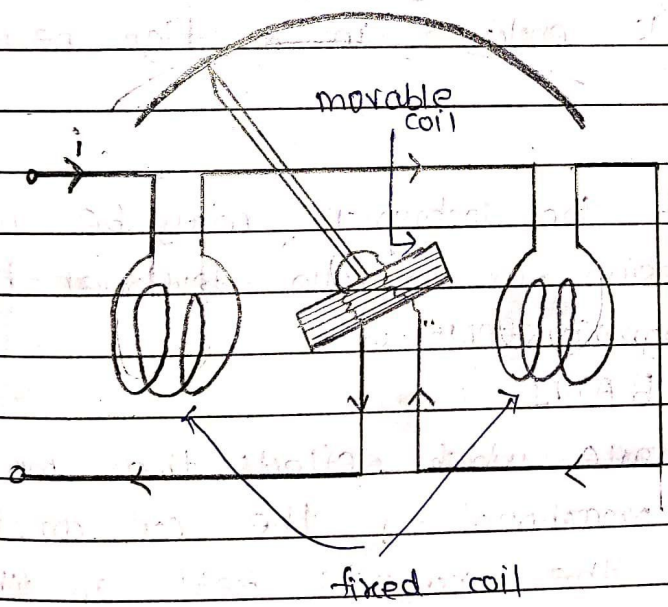 movable
coil
i
fixed coil